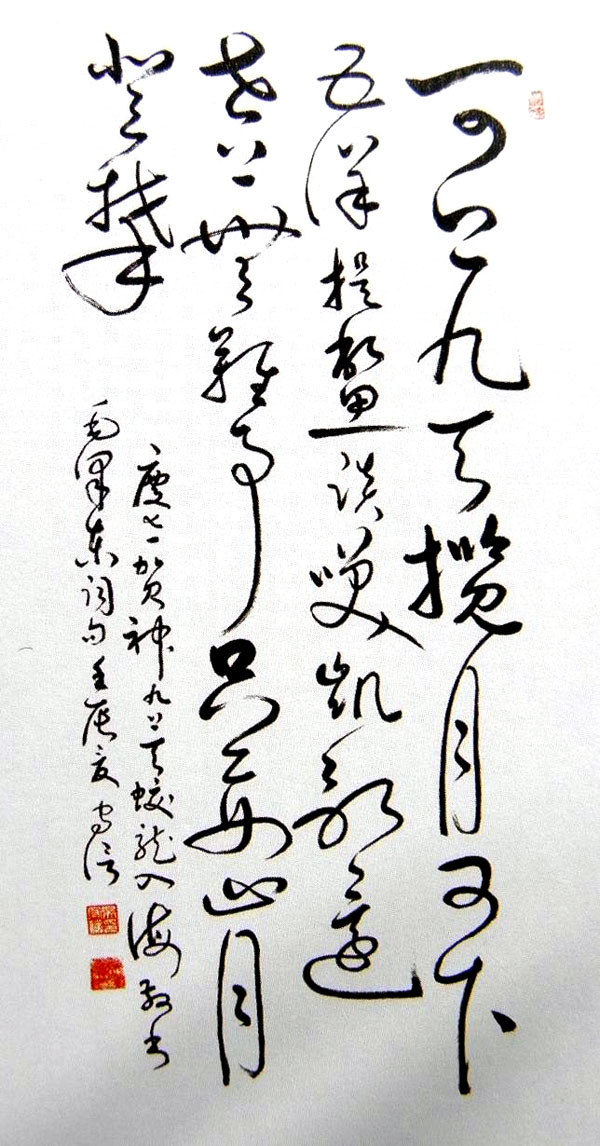 可上九天揽月可下
五洋捉鳖谈笑凯歌还
世上無難事只要肯
登攀
庆七一贺神九上天蛟龙入海敬书
毛泽东词句壬辰夏